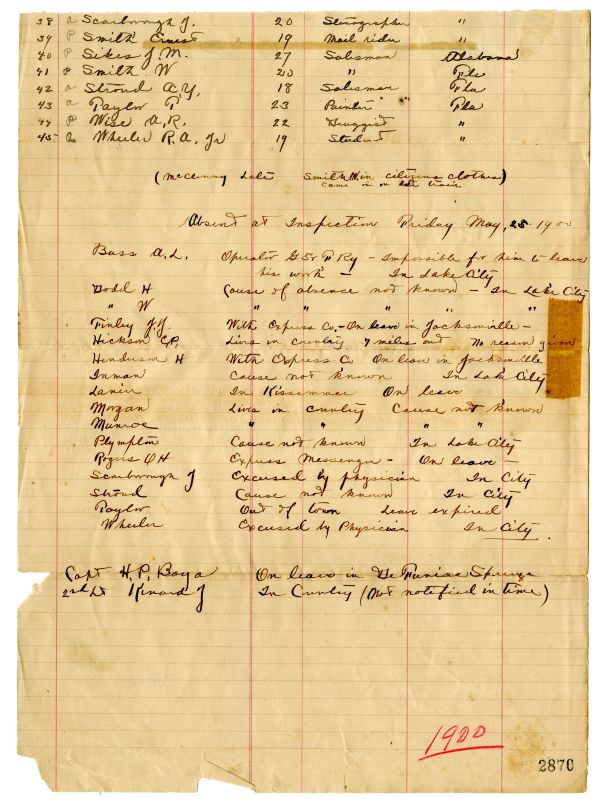 38 a Scarborough J. 20 Stenographer "
39 P Smith Ernest x 19 Mail rider "
40 P Sikes J. M. 27 Salesman Alabama
41 P Smith W 20 " Fla
42 a Stroud A. Y. 18 Salesman Fla
43 a Taylor T 23 Painter " Fla
44 P Wise A. R. 22 Druggist "
45 a Wheeler R. A. Jr 19 Student "
(McClenny late Smith W in citizens clothes)
came in on late train
Absent at Inspection Friday May, 25 - 1900
Bass A. L. Operator G S & F Ry - Impossible for him to leave
his work - In Lake City
Dodd H Cause of absence not known - In Lake City
" W " " " " "
Finley J. J. With Express Co. - On leave in Jacksonville -
Hickson C. P. Lives in country 7 miles out No reason given
Henderson H With Express Co On leave in Jacksonville
Inman Cause not known In Lake City
Lanier In Kissimmee On leave
Morgan Lives in country Cause not known
Munroe " " " "
Plympton Cause not known In Lake City
Rogers O H Express Messenger - On leave -
Scarborough J Excused by physician In City
Stroud Cause not known In City
Taylor Out of town Leave expired
Wheeler Excused by Physician In City.
Capt H. P. Baya On leave in De Funiac Springs
2nd Lt Kinard J In Country (Not notified in time)
1900
2870